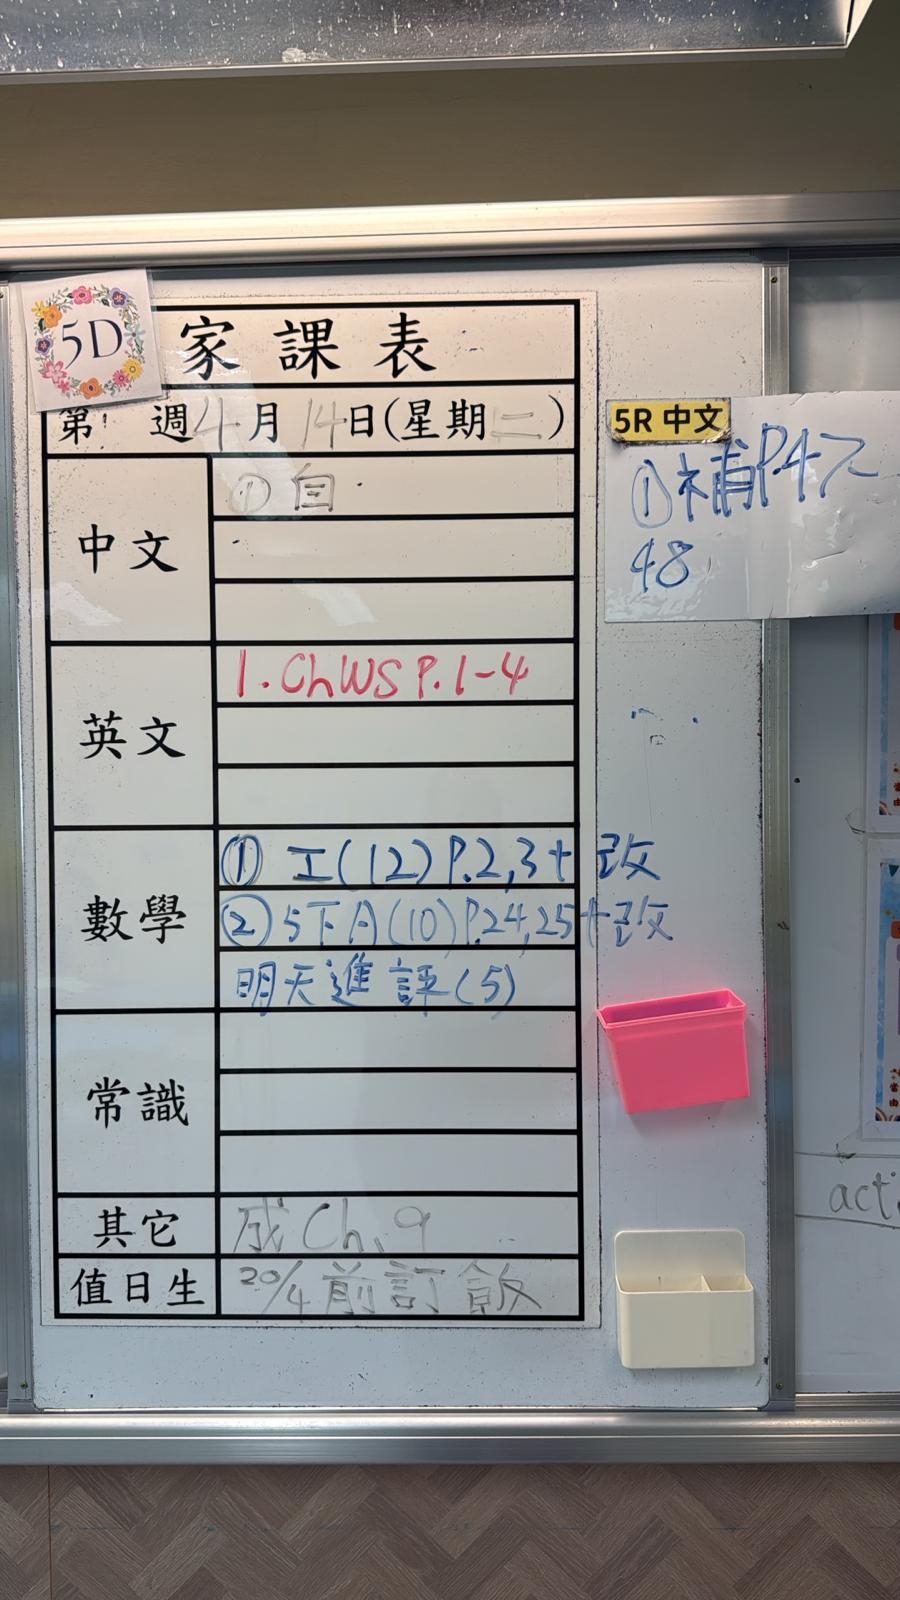 5D
家課表
第 週4月14日(星期二)
中文
①自
英文
1. Ch WS P.1-4
數學
① 工(12)P.2,3+改
② 5下A(10)P.24,25+改
明天進評(5)
常識
其它
成 Ch.9
值日生
20/4前訂飯
5R 中文
①補P47
48